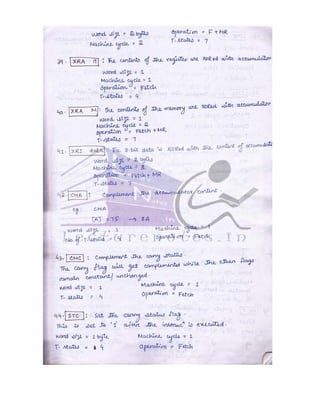 word size = 2 bytes operation = F + MR
Machine cycle = 2 T-states = 7
39. XRA R : The contents of the register are XORed with accumulator
word size = 1
Machine cycle = 1
operation = Fetch
T-states = 4
40. XRA M : The contents of the memory are XORed with accumulator
word size = 1
Machine cycle = 2
operation = Fetch + MR
T-states = 7
41. XRI data : The 8-bit data is XORed with the content of accumulator
word size = 2 bytes
Machine cycle = 2
operation = Fetch + MR
T-states = 7
42. CMA : Complement the accumulator content
eg: CMA
[A] = 75 → 8A
word size = 1 Machine cycle = 1
No. of T-states = 4 operation = Fetch
43. CMC : Complement the carry status.
The carry flag will get complemented while the other flags
remain constant / unchanged.
word size = 1 Machine cycle = 1
T-states = 4 Operation = Fetch
44. STC : Set the carry status flag.
This is set to '1' when the instruc is executed.
word size = 1 byte Machine cycle = 1
T-states = 4 Operation = Fetch